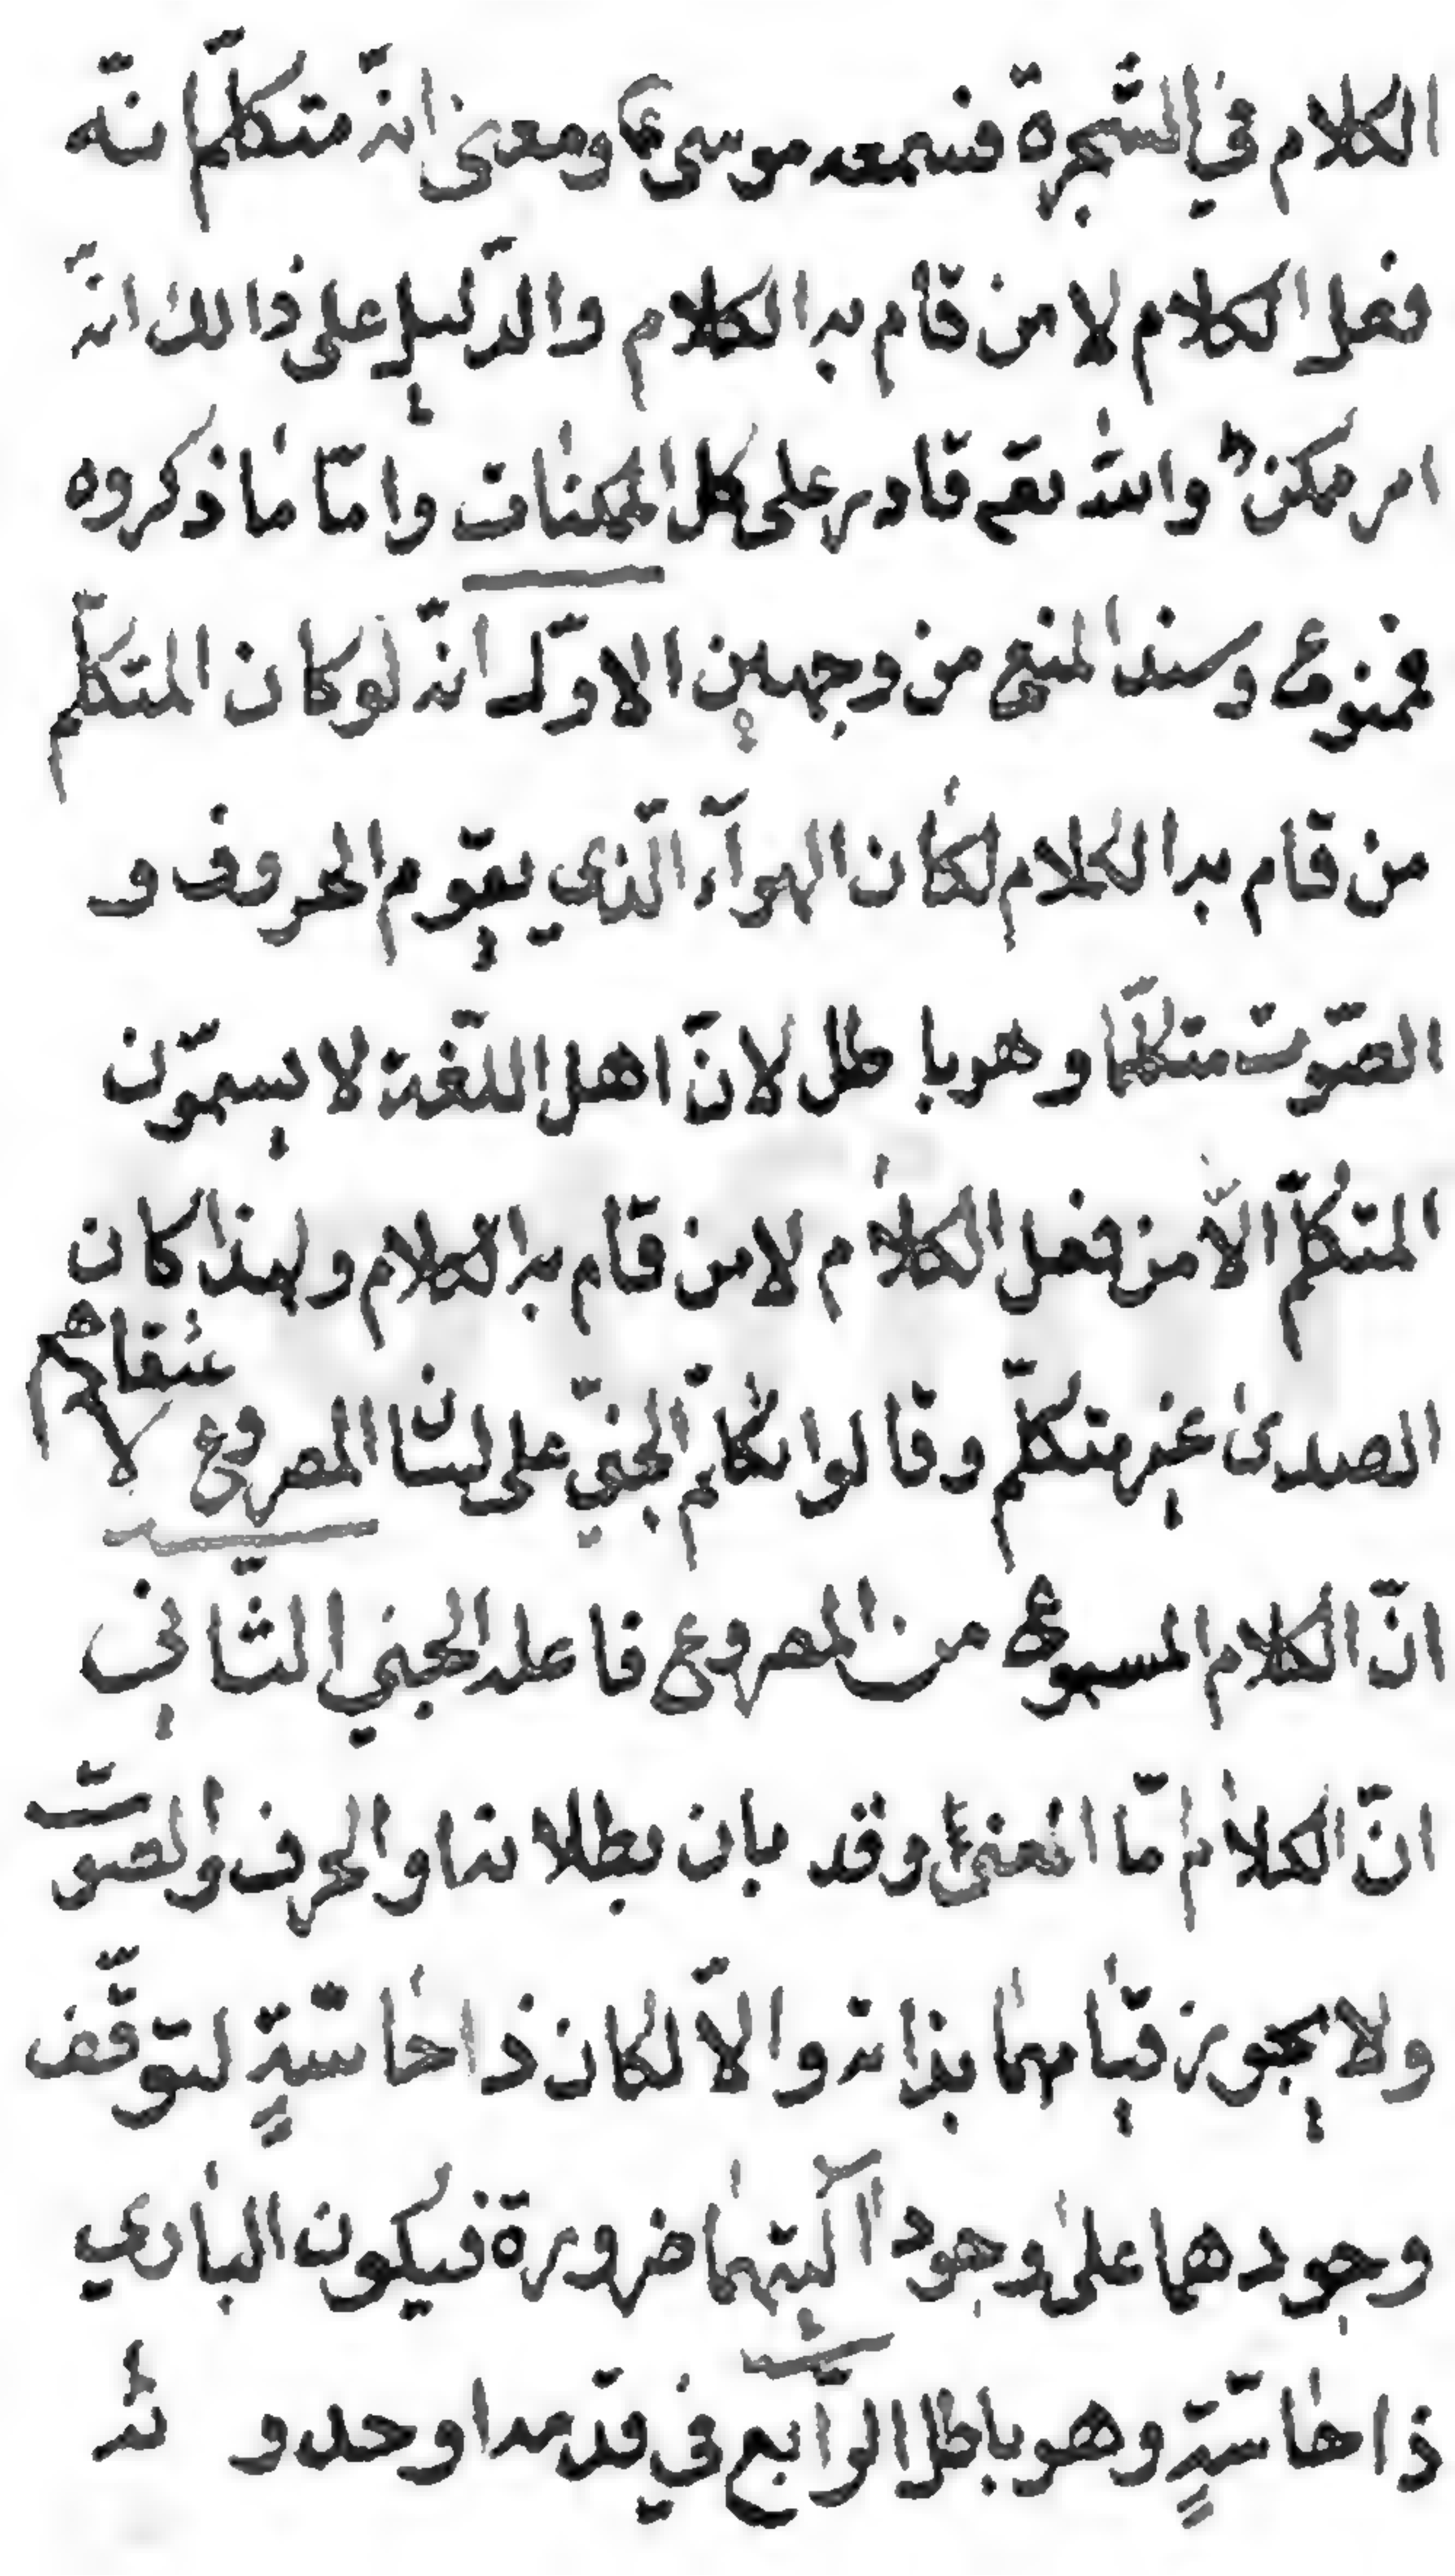 الكلام في الشّجرة فسمعه موسى ع ومعنى انّه متكلّم انّه
فعل الكلام لا من قام به الكلام والدّليل على ذالك انّه
امر ممكن والله تعم قادر على كل الممكنات وامّا ما ذكروه
فممنوع وسند المنع من وجهين الاوّل انّه لو كان المتكلّم
من قام به الكلام لكان الهوآء الّذي يقوّم الحروف و
الصّوت متكلّما وهو باطل لانّ اهل اللّغة لا يسمّون
المتكلّم الّا من فعل الكلام لا من قام به الكلام ولهذا كان
الصدى غير متكلّم وقالوا تكلّم الجنّي على لسان المصروع لا
عتقادهم
انّ الكلام المسموع من المصروع فاعله الجني الثّاني
انّ الكلام امّا المعنى وقد بان بطلانه او الحرف والصوت
ولا يجوز قيامهما بذاته والّا لكان ذا حاسّةٍ لتوقّف
وجودهما على وجود آلتيهما ضرورة فيكون الباري
ذا حاسّةٍ وهو باطل الرّابع في قدمه او حدو ثه